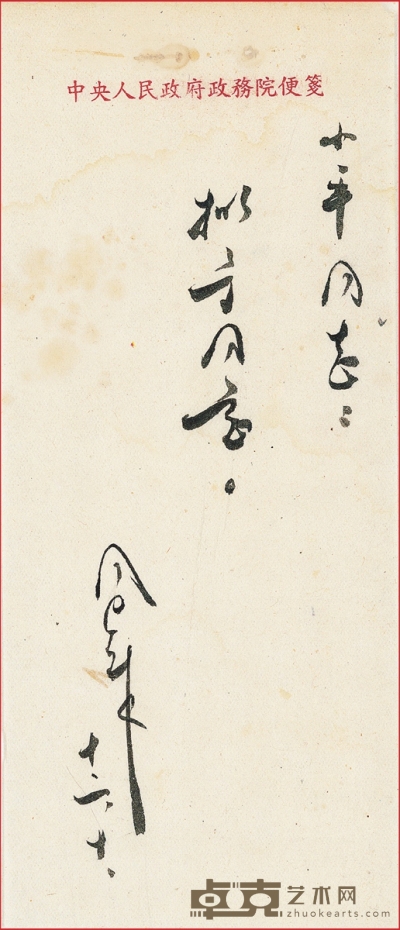 中央人民政府政務院便箋
小平同志：
拟予同意。
周恩来
十二、十、
卓克艺术网
zhuokearts.com